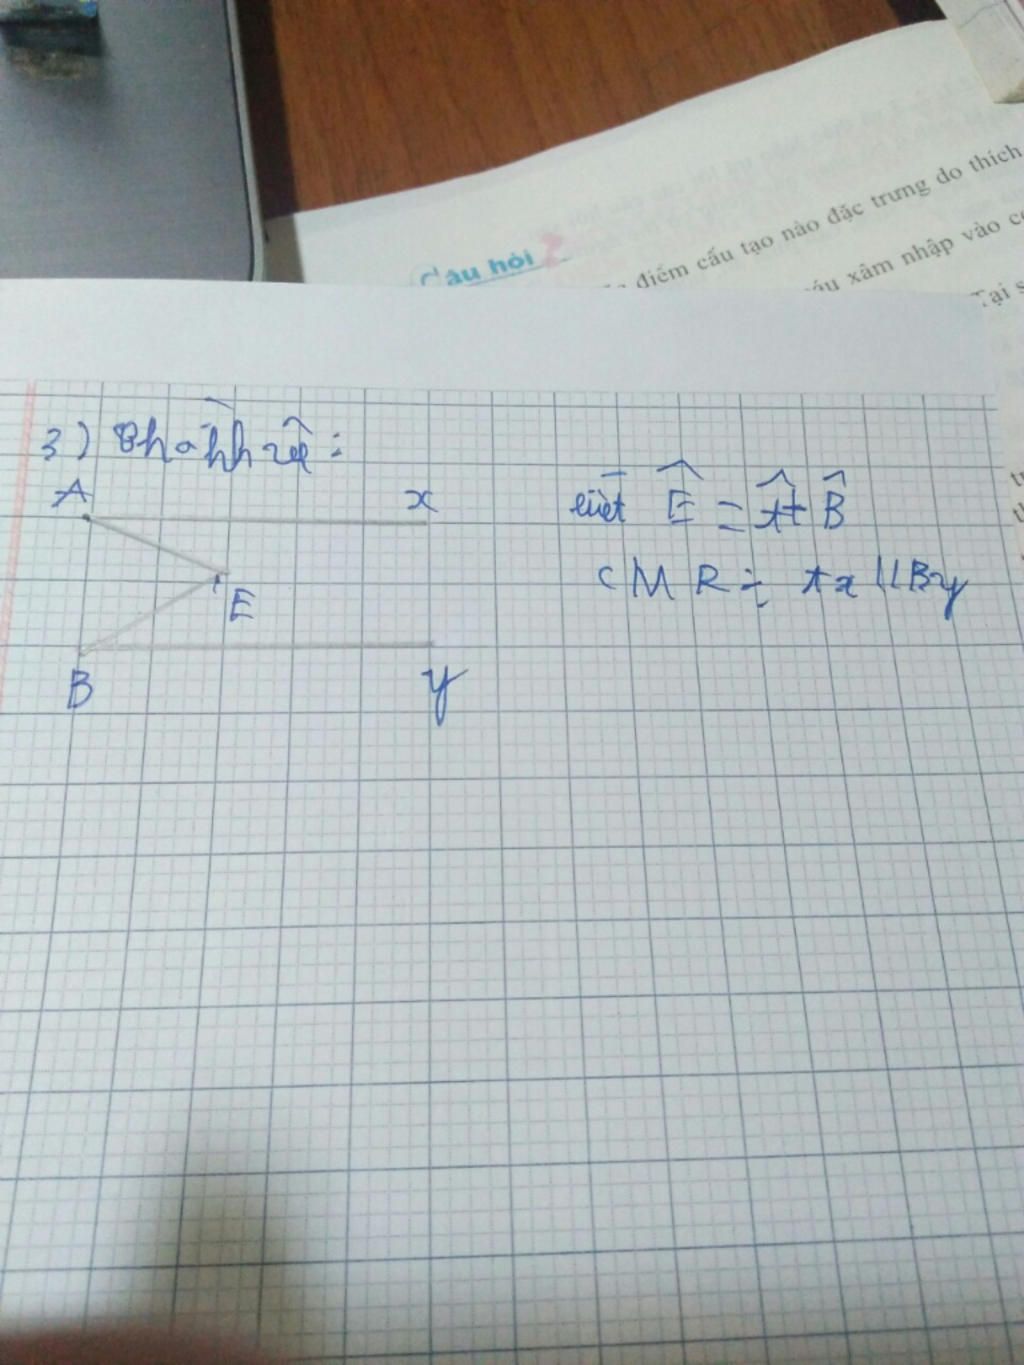 Câu hỏi
điểm cấu tạo nào đặc trưng do thích
xâm nhập vào cơ
Tại s
3) Cho hình vẽ:
A
x
E
B
y
biết Ê = Â + B̂
CMR: Ax // By